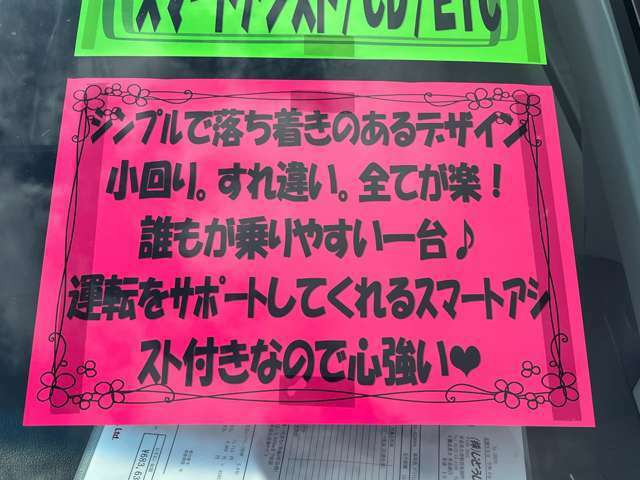 スマートアシスト/CD/ETC
シンプルで落ち着きのあるデザイン
小回り。すれ違い。全てが楽！
誰もが乗りやすい一台♪
運転をサポートしてくれるスマートアシ
スト付きなので心強い♥